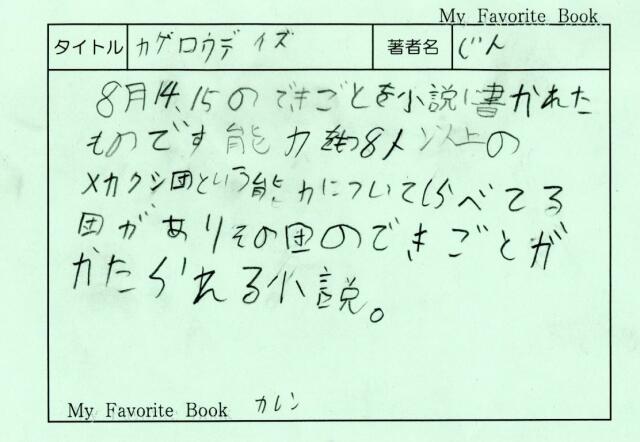 My Favorite Book
タイトル カゲロウデイズ 著者名 じん
8月14、15のできごとを小説に書かれた
ものです能力を持つ8人以上の
メカクシ団という能力についてしらべてる
団がありその団のできごとが
かたられる小説。
My Favorite Book カレン